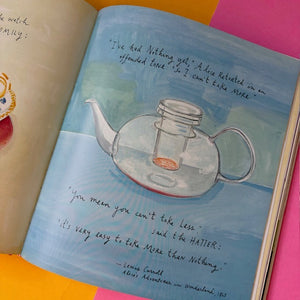 the world
FAMILY:
"I've had Nothing yet," Alice Retorted in an
offended tone, "So I can't take More."
"you mean you can't take Less"
said the HATTER:
"it's very easy to take More than Nothing."
— Lewis Carroll
Alice's Adventures in Wonderland, 1865